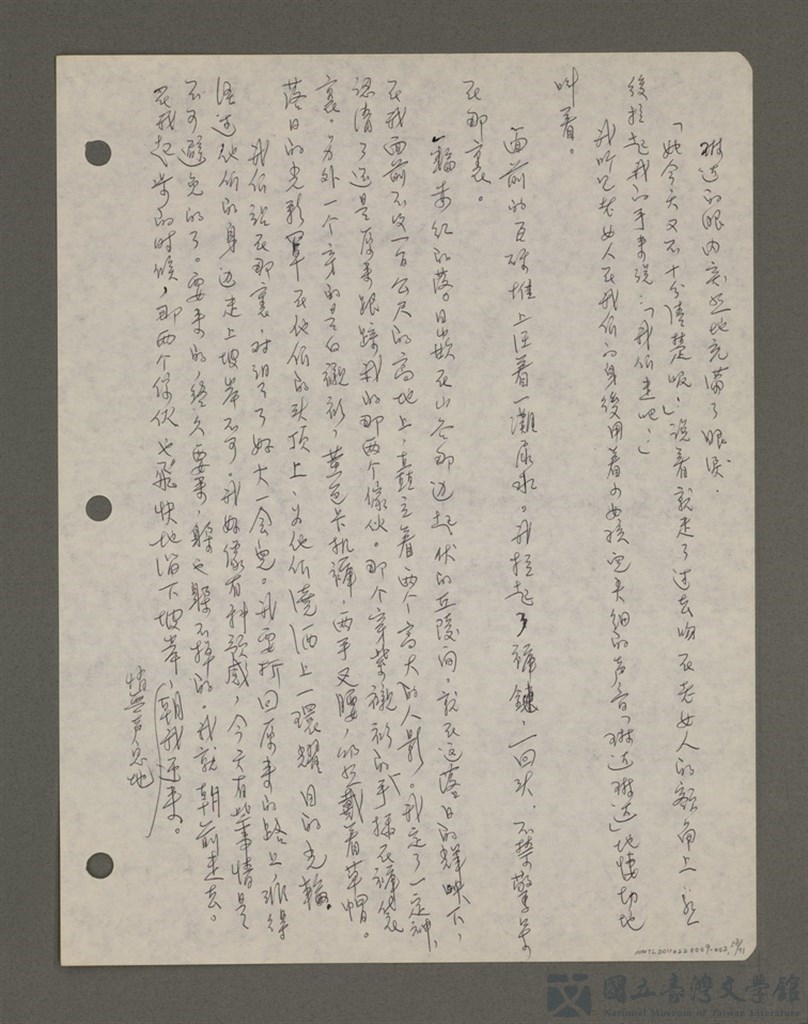 琳达的眼内突然地充滿了眼淚.
「她今天又不十分清楚呢。」说着就走了过去吻在老女人的额角上,然
後拉起我的手来说:「我们走吧!」
我听见老女人在我们的身後用着少女孩兒尖细的声音「琳达琳达」地悽切地
叫着。
面前的瓦砾堆上汪着一灘尿水。我拉起了褲鏈,一回头,不禁驚呆
在那裏。
一輪朱红的落日嵌在山谷那边起伏的丘陵间,就在这落日的輝映下,
在我面前不及一百公尺的高地上,矗立着两个高大的人影。我定了一定神,
认清了还是原来跟踪我的那两个傢伙。那个穿紫襯衫的手插在褲袋
裏。另外一个穿的是白襯衫,黄色卡机褲,两手叉腰,仍然戴着草帽。
落日的光影罩在他们的头顶上,为他们澆洒上一環耀目的光輪。
我们站在那裏,对视了好大一会兒。我要折回原来的路上,非得
经过他们的身边走上坡岸不可。我好像有种预感,今天有些事情是
不可避免的了。要来的,終久要来,躲也躲不掉的。我就朝前走去。
在我起步的时候,那两个傢伙也飛快地溜下坡岸,朝我逆来。
悄無声息地
NMTL20110220009-002
國立臺灣文學館
National Museum of Taiwan Literature